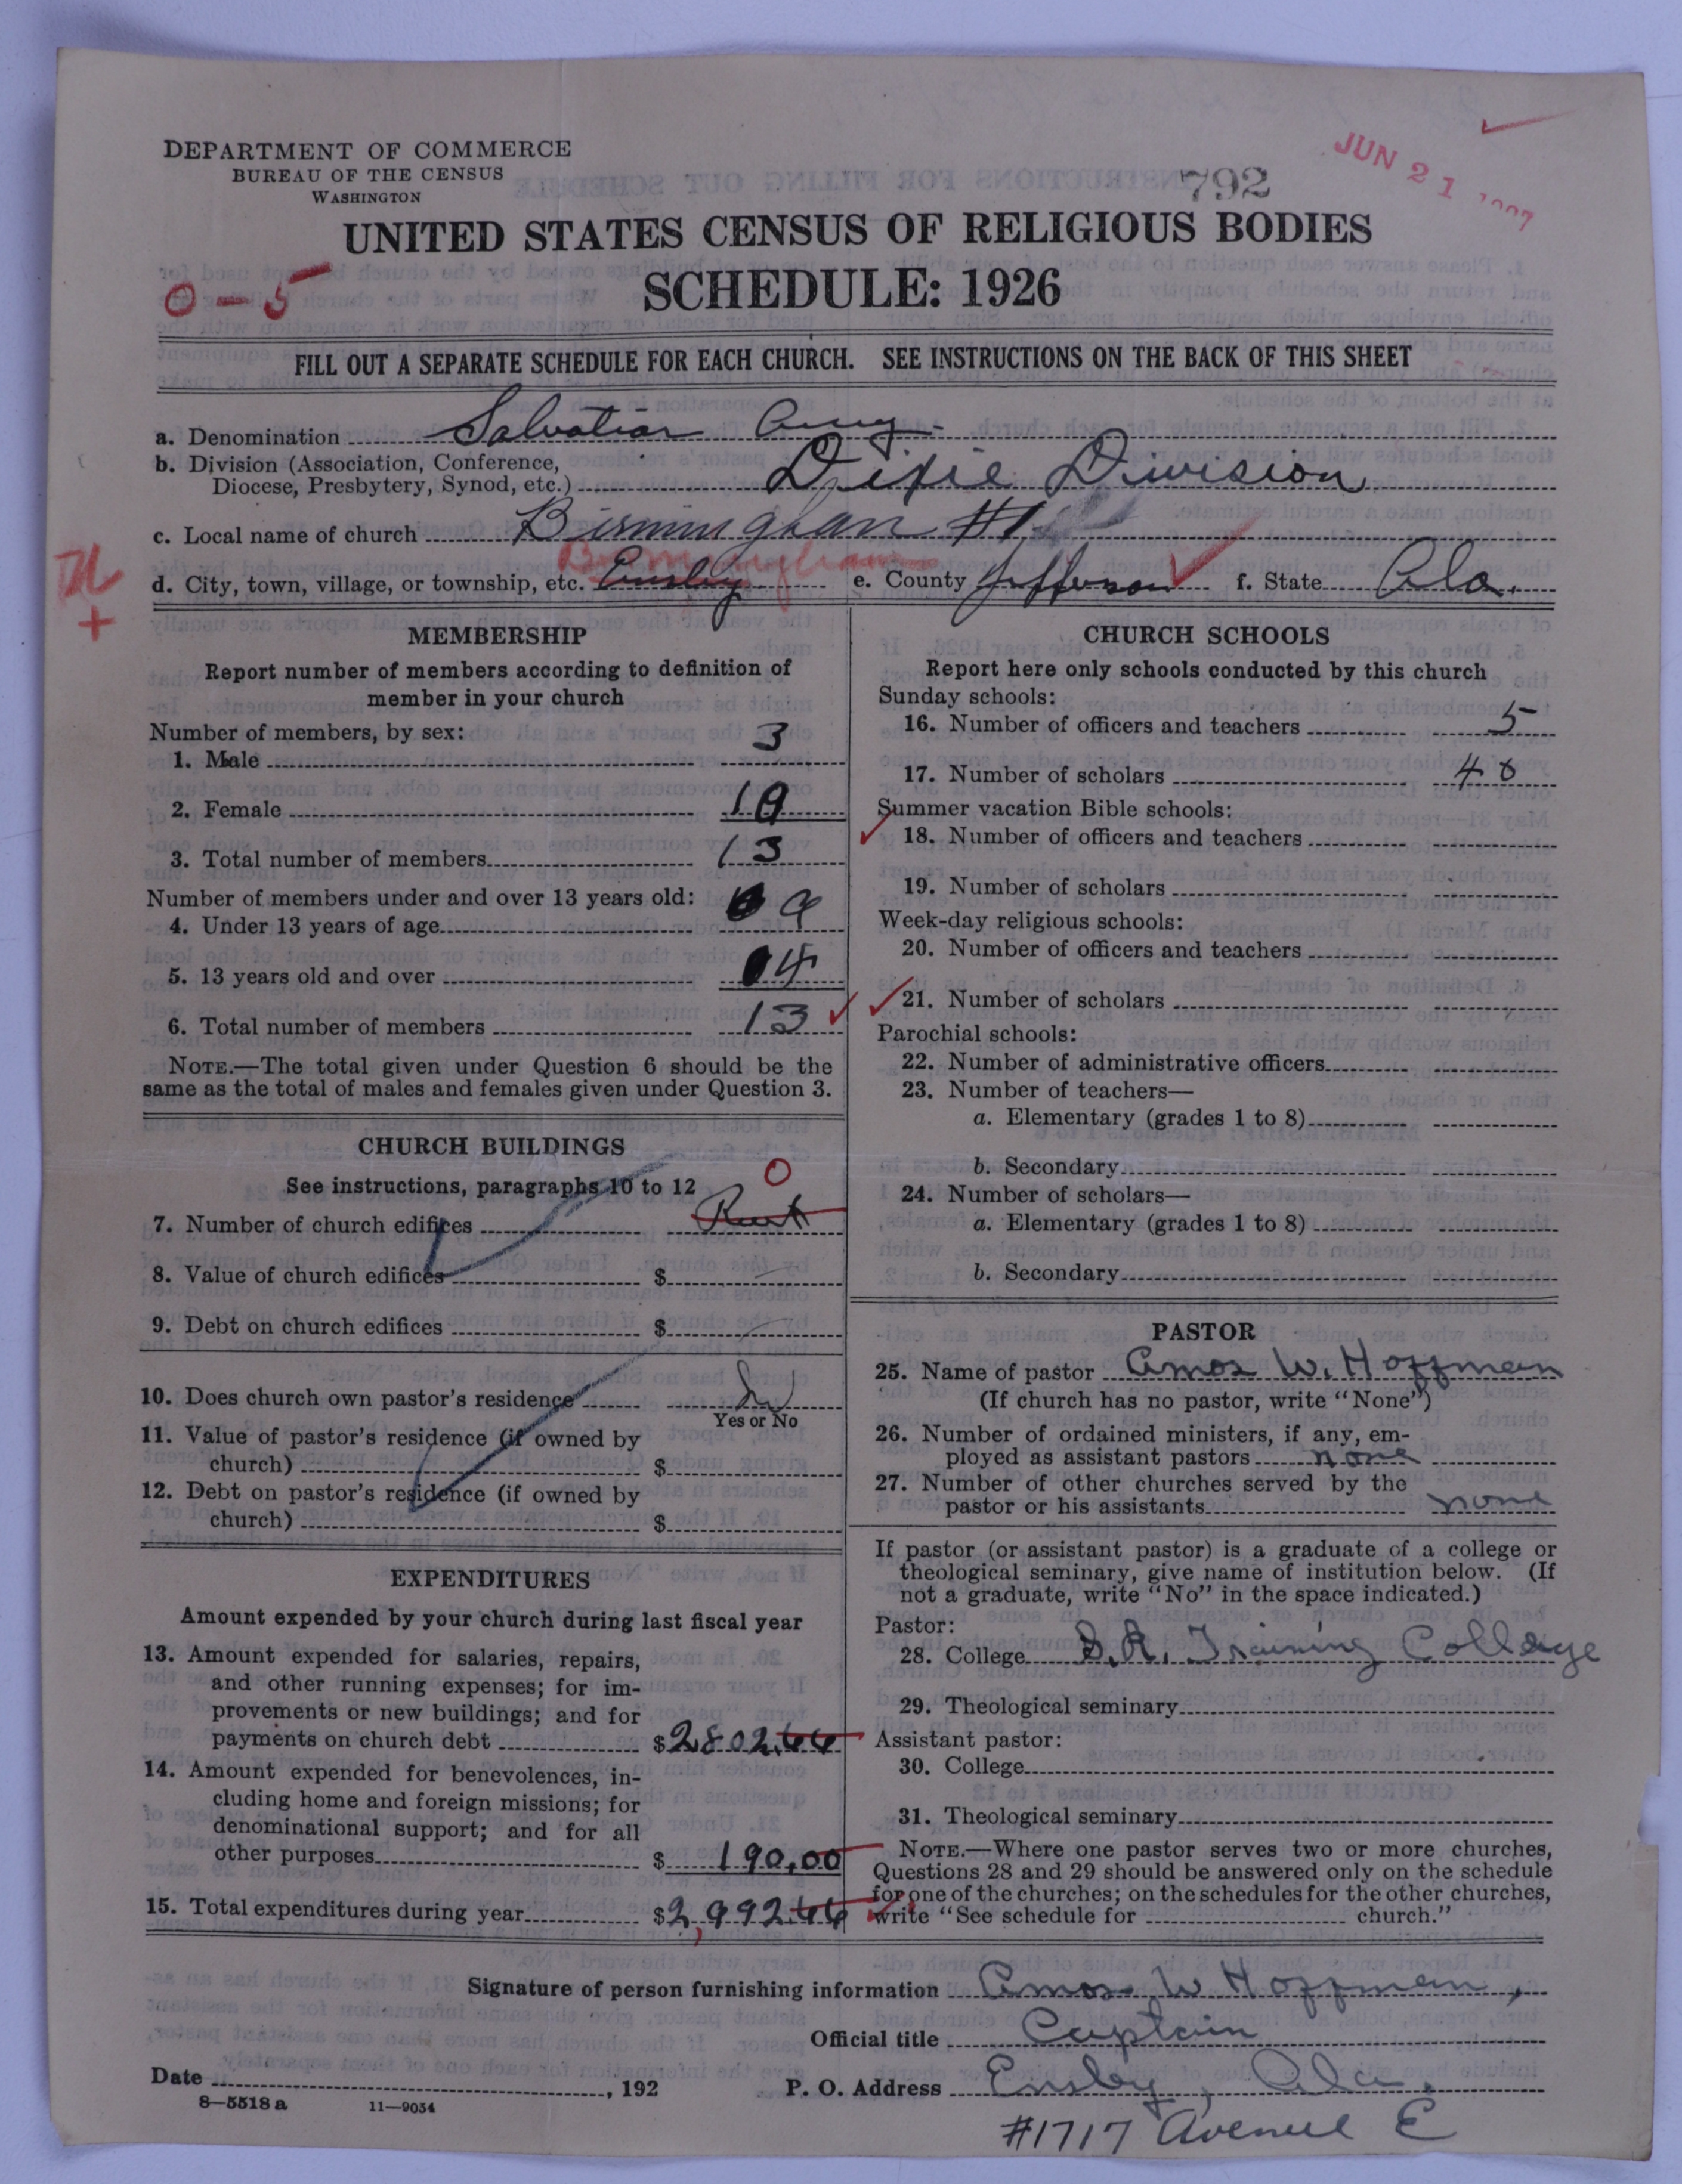 DEPARTMENT OF COMMERCE
BUREAU OF THE CENSUS
WASHINGTON
792
JUN 21
UNITED STATES CENSUS OF RELIGIOUS BODIES
SCHEDULE: 1926
0-5
FILL OUT A SEPARATE SCHEDULE FOR EACH CHURCH. SEE INSTRUCTIONS ON THE BACK OF THIS SHEET
a. Denomination Salvation Army.
b. Division (Association, Conference,
Diocese, Presbytery, Synod, etc.) Dixie Division
c. Local name of church Birmingham #1
Birmingham
d. City, town, village, or township, etc. Ensley e. County Jefferson f. State Ala.
MEMBERSHIP
Report number of members according to definition of
member in your church
Number of members, by sex:
1. Male 3
2. Female 10
3. Total number of members 13
Number of members under and over 13 years old:
4. Under 13 years of age 9
5. 13 years old and over 4
6. Total number of members 13
NOTE.—The total given under Question 6 should be the
same as the total of males and females given under Question 3.
CHURCH BUILDINGS
See instructions, paragraphs 10 to 12
0
7. Number of church edifices Rent
8. Value of church edifices $
9. Debt on church edifices $
10. Does church own pastor's residence
Yes or No
11. Value of pastor's residence (if owned by
church) $
12. Debt on pastor's residence (if owned by
church) $
EXPENDITURES
Amount expended by your church during last fiscal year
13. Amount expended for salaries, repairs,
and other running expenses; for im-
provements or new buildings; and for
payments on church debt $2802.44
14. Amount expended for benevolences, in-
cluding home and foreign missions; for
denominational support; and for all
other purposes $ 190.00
15. Total expenditures during year $2,992.44
CHURCH SCHOOLS
Report here only schools conducted by this church
Sunday schools:
16. Number of officers and teachers 5
17. Number of scholars 40
Summer vacation Bible schools:
18. Number of officers and teachers
19. Number of scholars
Week-day religious schools:
20. Number of officers and teachers
21. Number of scholars
Parochial schools:
22. Number of administrative officers
23. Number of teachers—
a. Elementary (grades 1 to 8)
b. Secondary
24. Number of scholars—
a. Elementary (grades 1 to 8)
b. Secondary
PASTOR
25. Name of pastor Amos W. Hoffman
(If church has no pastor, write "None")
26. Number of ordained ministers, if any, em-
ployed as assistant pastors none
27. Number of other churches served by the
pastor or his assistants none
If pastor (or assistant pastor) is a graduate of a college or
theological seminary, give name of institution below. (If
not a graduate, write "No" in the space indicated.)
Pastor:
28. College S.A. Training College
29. Theological seminary
Assistant pastor:
30. College
31. Theological seminary
NOTE.—Where one pastor serves two or more churches,
Questions 28 and 29 should be answered only on the schedule
for one of the churches; on the schedules for the other churches,
write "See schedule for church."
Signature of person furnishing information Amos W Hoffman,
Official title Captain
Date , 192 P. O. Address Ensley, Ala.
8—5518 a 11—9054
#1717 Avenue E